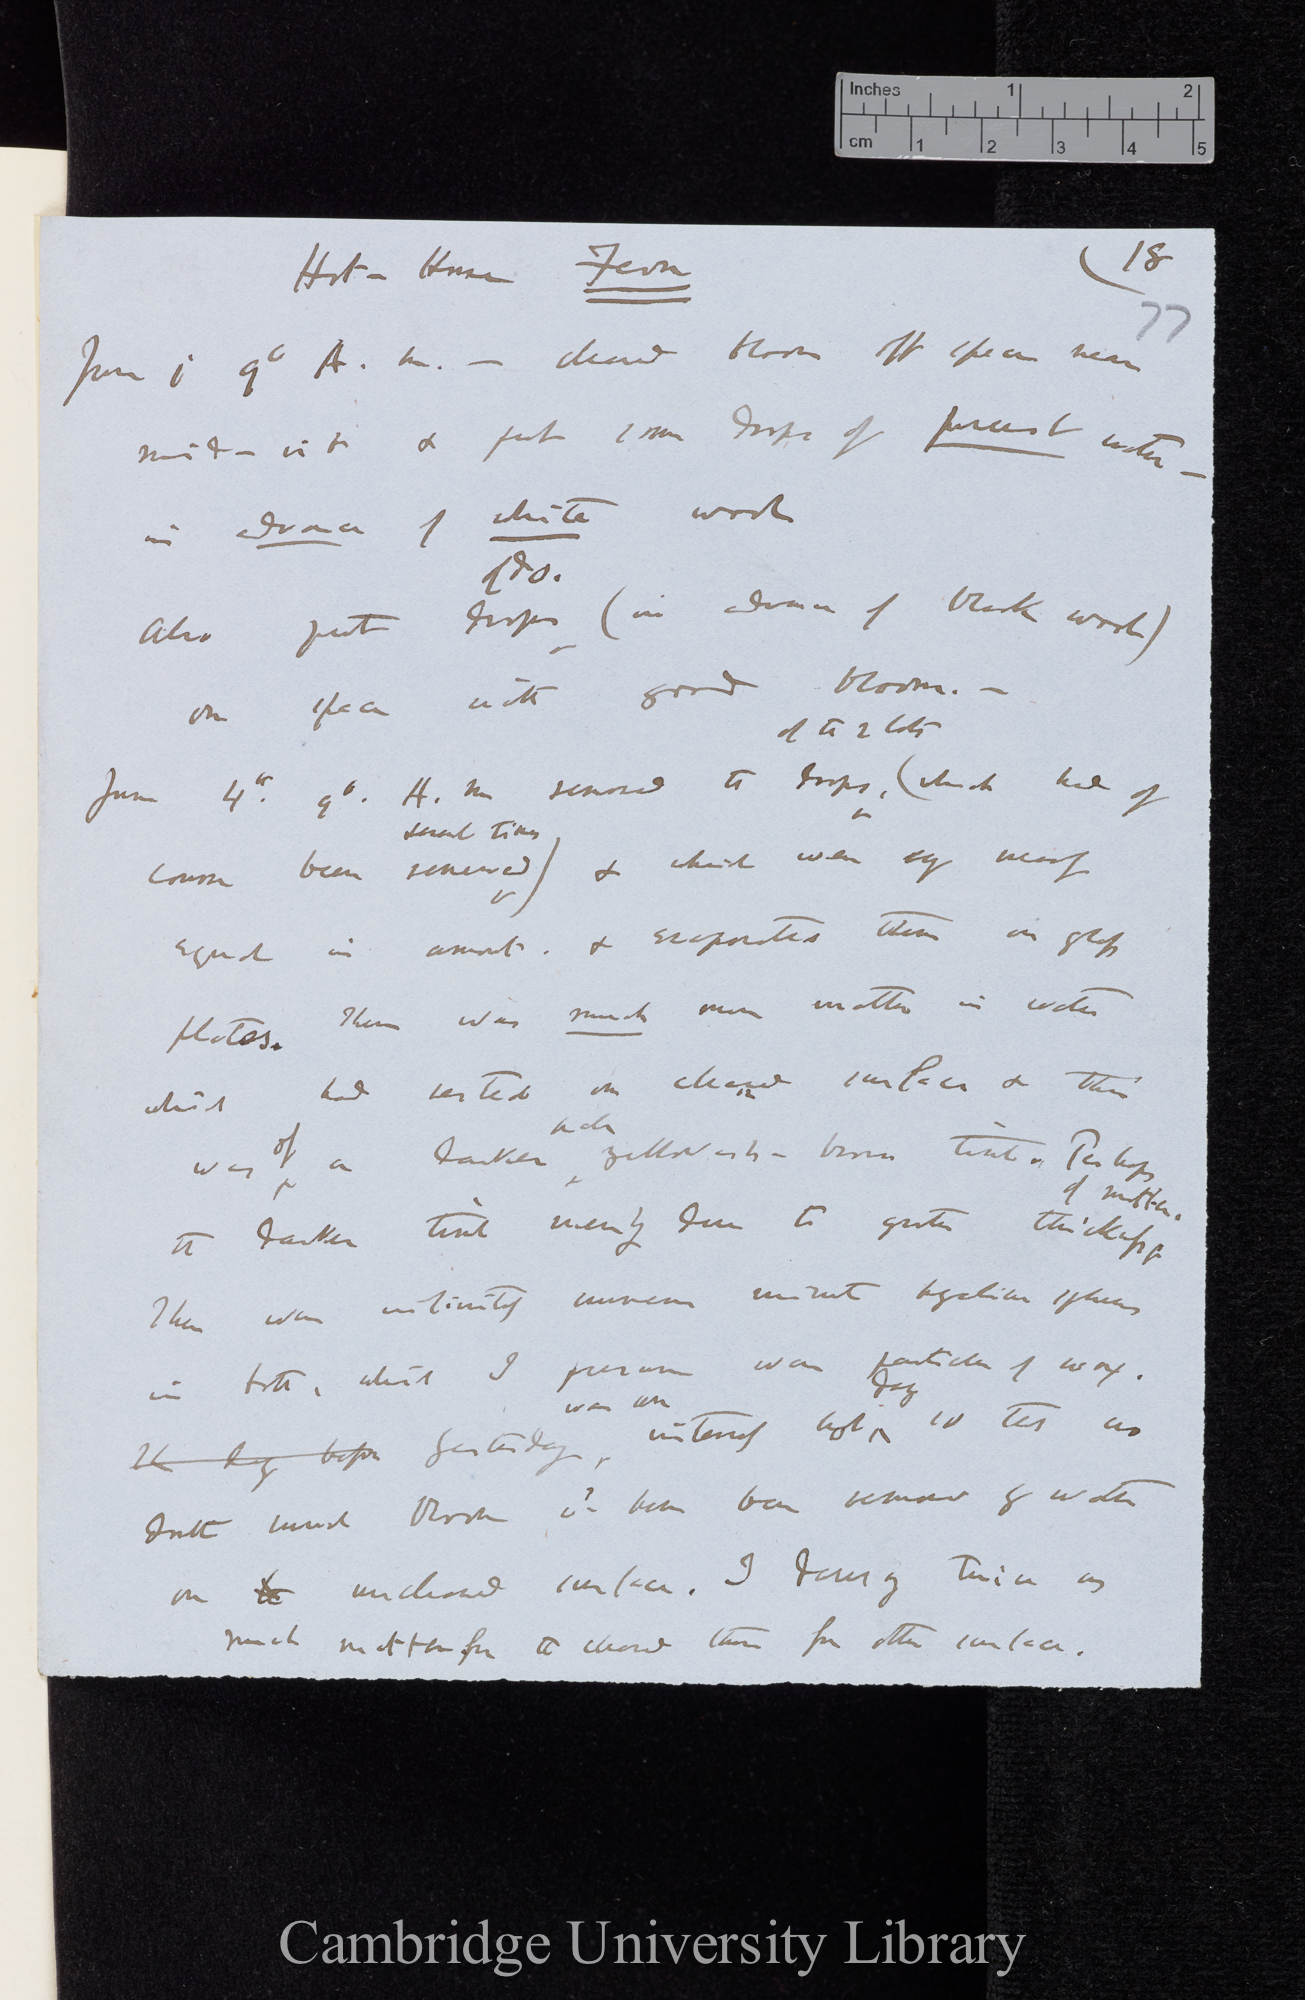 Inches 1 2
cm 1 2 3 4 5
Hot-House Fern
(18
77
June 1 9° A.m. — cleaned bloom off space near
mid-rib & put some drops of purest water —
in advance of white wool
of do.
Also put drops (in advance of black wool)
on space with good bloom. —
of the 2 lots
June 4th. 9°. A. m removed the drops, (which had of
several times
course been renewed) & which were nearly
equal in amount. & evaporated them on glass
plates. There was much more matter in water
which had rested on cleaned surface & this
was of a darker yellowish-brown tint. Perhaps
of matter.
the darker tint merely due to greater thickness
There were infinitely numerous minute hyaline spheres
in both, which I presume were particles of wax.
was an day
The day before Yesterday, intensely hot, so that no
doubt much bloom would have been removed by water
on the uncleaned surface. I twice as
much matter for the cleaned than for other surface.
Cambridge University Library